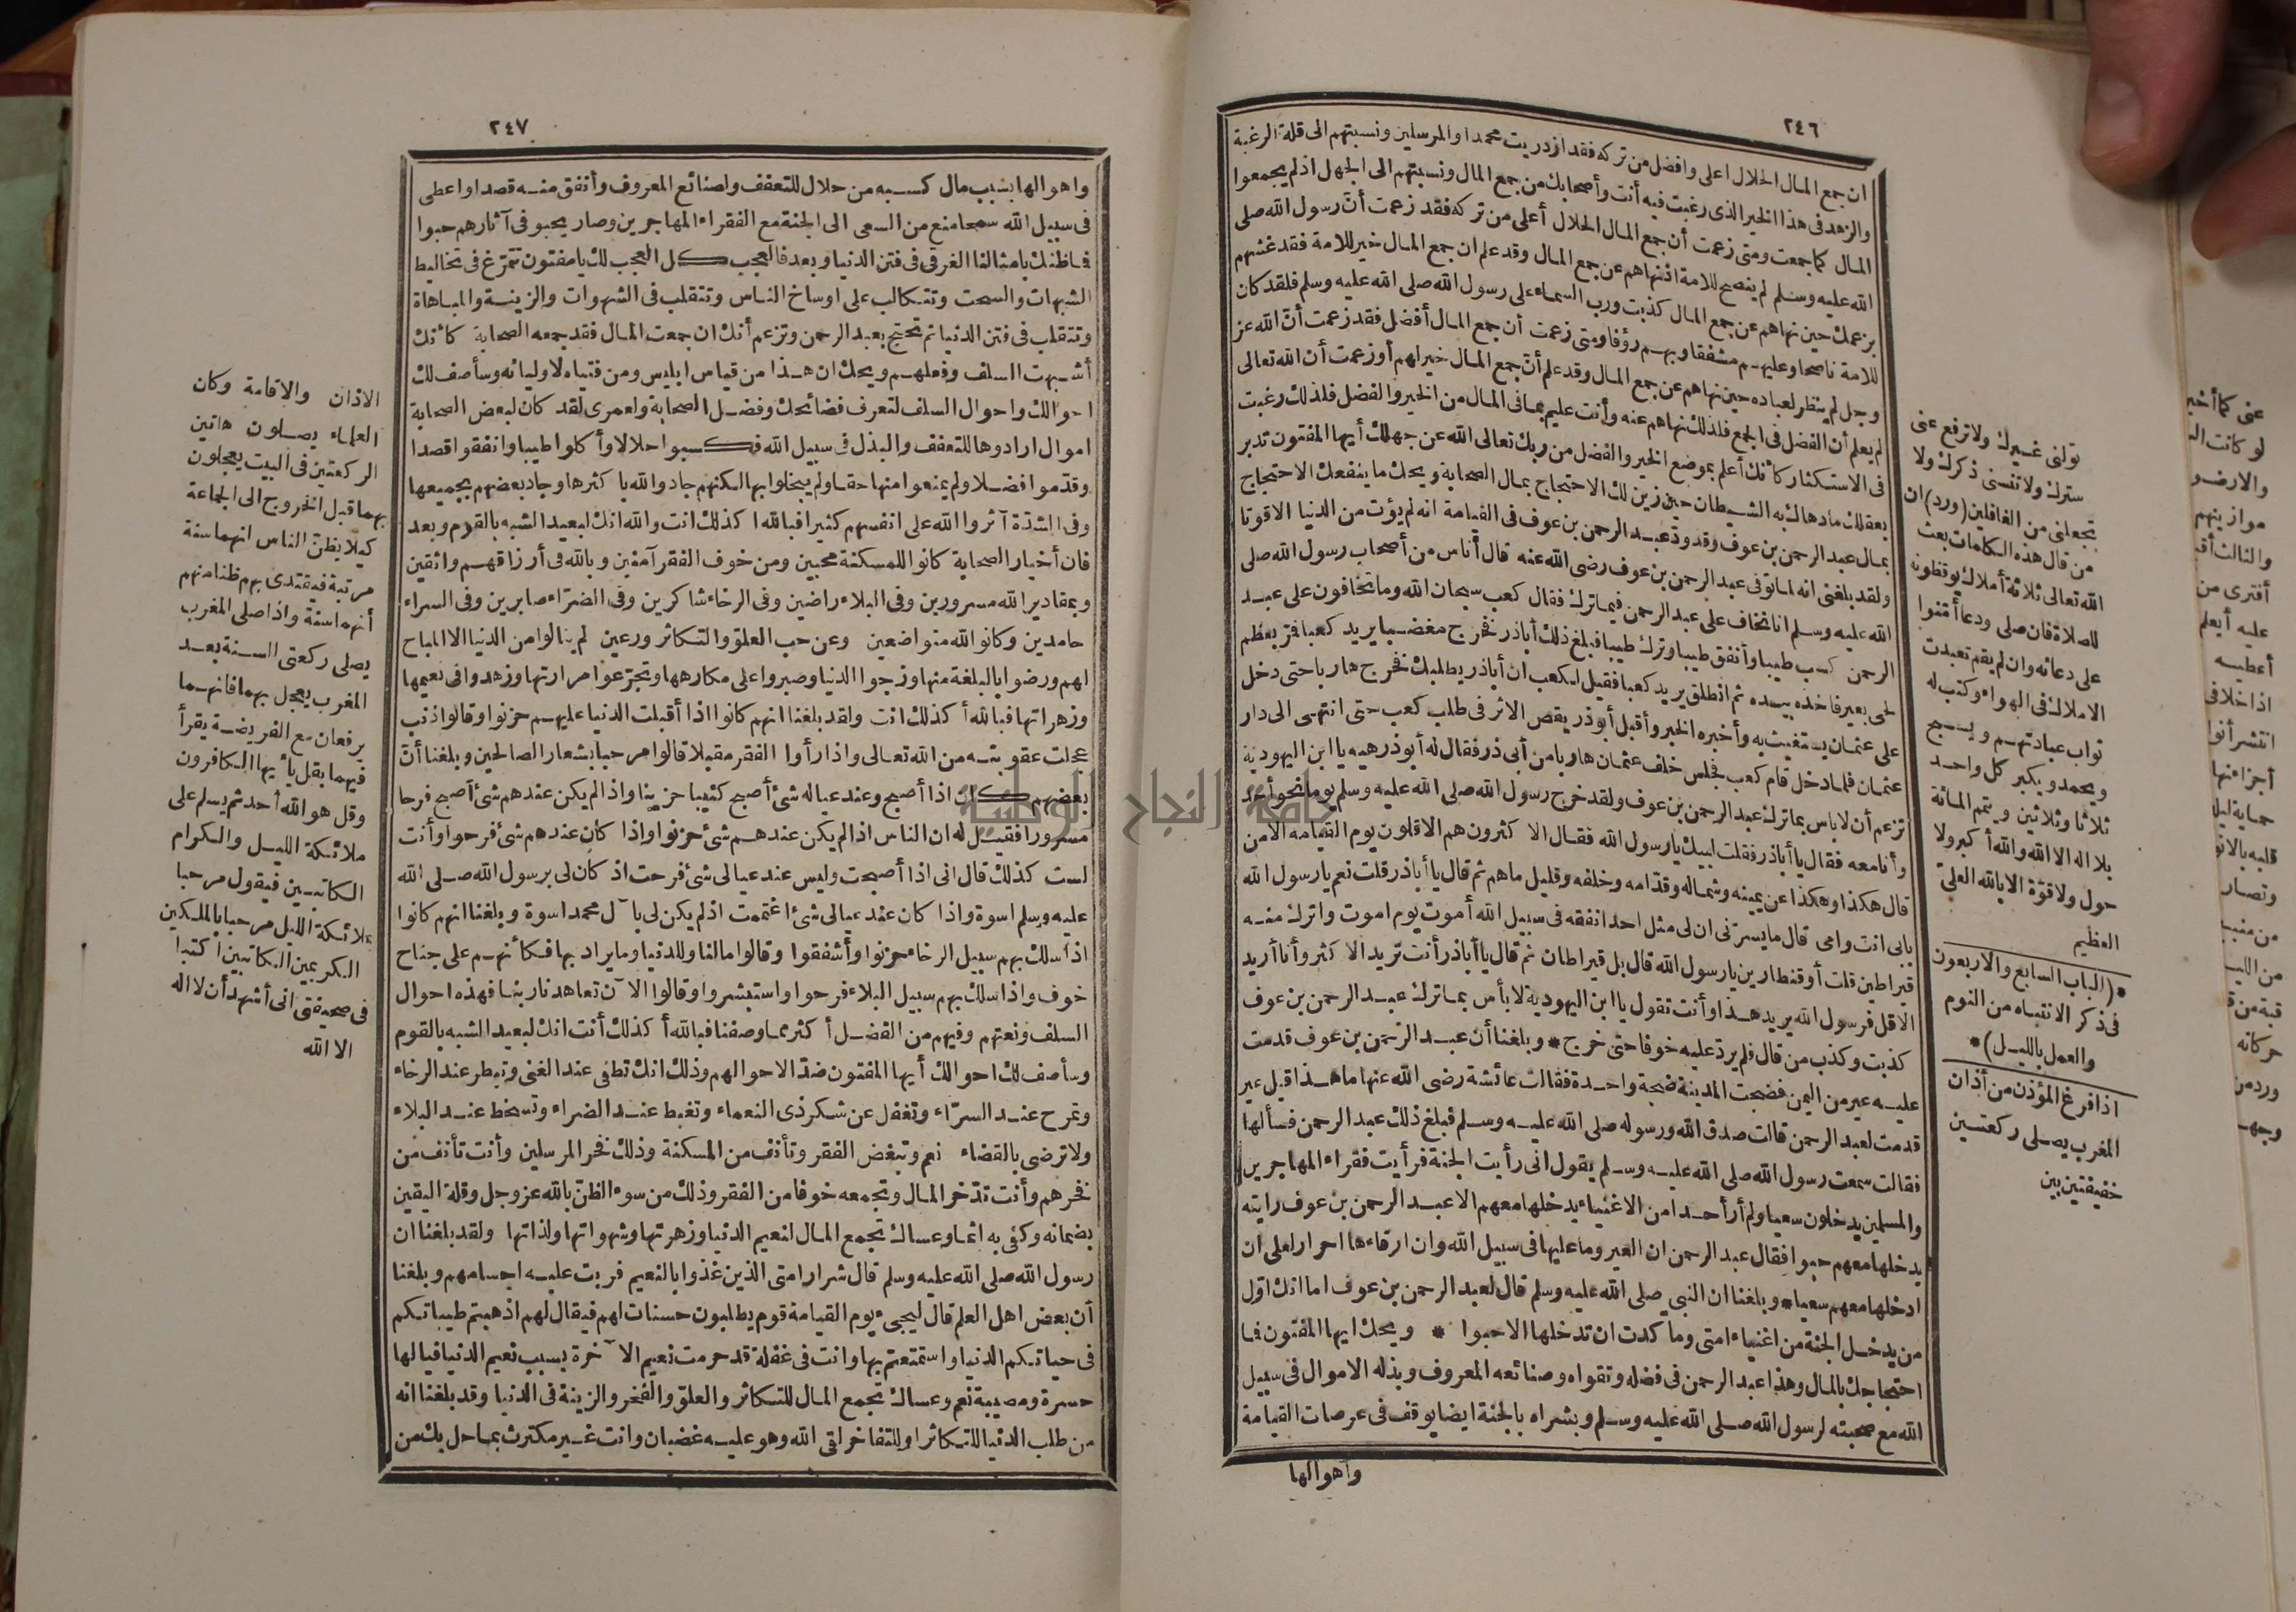 ٢٤٦
ان جمع المال الحلال اعلى وافضل من تركه فقد ازدريت محمدا والمرسلين ونسبتهم الى قلة الرغبة
والزهد فى هذا الخير الذى رغبت فيه أنت وأصحابك من جمع المال ونسبتهم الى الجهل اذ لم يجمعوا
المال كما جمعت ومتى زعمت أن جمع المال الحلال أعلى من تركه فقد زعمت أن رسول الله صلى
الله عليه وسلم لم ينصح للامة اذ نهاهم عن جمع المال وقد علم ان جمع المال خير للامة فقد غشهم
بزعمك حين نهاهم عن جمع المال كذبت ورب السماء على رسول الله صلى الله عليه وسلم فلقد كان
للامة ناصحا وعليهم مشفقا وبهم رؤفا ومتى زعمت أن جمع المال أفضل فقد زعمت أن الله عز
وجل لم ينظر لعباده حين نهاهم عن جمع المال وقد علم أن جمع المال خير لهم أو زعمت أن الله تعالى
لم يعلم أن الفضل فى الجمع فلذلك نهاهم عنه وأنت عليم بما فى المال من الخير والفضل فلذلك رغبت
فى الاستكثار كانك أعلم بموضع الخير والفضل من ربك تعالى الله عن جهلك أيها المفتون تدبر
بعقلك ما دهاك به الشيطان حين زين لك الاحتجاج بمال الصحابة ويحك ما ينفعك الاحتجاج
بمال عبد الرحمن بن عوف وقد ودّ عبد الرحمن بن عوف فى القيامة انه لم يؤت من الدنيا الا قوتا
ولقد بلغنى انه لما توفى عبد الرحمن بن عوف رضى الله عنه قال أناس من أصحاب رسول الله صلى
الله عليه وسلم انا نخاف على عبد الرحمن فيما ترك فقال كعب سبحان الله وما تخافون على عبد
الرحمن كسب طيبا وأنفق طيبا وترك طيبا فبلغ ذلك أباذر فخرج مغضبا يريد كعبا فمرّ بعظم
لحى بعير فاخذه بيده ثم انطلق يريد كعبا فقيل لكعب ان أباذر يطلبك فخرج هاربا حتى دخل
على عثمان يستغيث به وأخبره الخبر وأقبل أبوذر يقص الاثر فى طلب كعب حتى انتهى الى دار
عثمان فلما دخل قام كعب فجلس خلف عثمان هاربا من أبى ذر فقال له أبوذر هيه يا ابن اليهودية
تزعم أن لا باس بما ترك عبد الرحمن بن عوف ولقد خرج رسول الله صلى الله عليه وسلم يوما نحو أحد
وأنا معه فقال يا أباذر فقلت لبيك يا رسول الله فقال الا كثرون هم الاقلون يوم القيامة الا من
قال هكذا وهكذا عن يمينه وشماله وقدّامه وخلفه وقليل ما هم ثم قال يا أباذر قلت نعم يا رسول الله
بابى انت وامى قال ما يسرنى ان لى مثل احد انفقه فى سبيل الله أموت يوم اموت واترك منه
قيراطين قلت أو قنطارين يا رسول الله قال بل قيراطان ثم قال يا أباذر أنت تريد الا كثر وأنا أريد
الاقل فرسول الله يريد هذا وأنت تقول يا ابن اليهودية لا بأس بما ترك عبد الرحمن بن عوف
كذبت وكذب من قال فلم يردّ عليه خوفا حتى خرج * وبلغنا أن عبد الرحمن بن عوف قدمت
عليه عير من اليمن فضجت المدينة ضجة واحدة فقالت عائشة رضى الله عنها ما هذا قيل عير
قدمت لعبد الرحمن قالت صدق الله ورسوله صلى الله عليه وسلم فبلغ ذلك عبد الرحمن فسألها
فقالت سمعت رسول الله صلى الله عليه وسلم يقول انى رأيت الجنة فرأيت فقراء المهاجرين
والمسلمين يدخلون سعيا ولم أر أحدا من الاغنياء يدخلها معهم الا عبد الرحمن بن عوف رايته
يدخلها معهم حبوا فقال عبد الرحمن ان العير وما عليها فى سبيل الله وان ارقاءها احرار لعلى ان
ادخلها معهم سعيا * وبلغنا ان النبى صلى الله عليه وسلم قال لعبد الرحمن بن عوف اما انك اول
من يدخل الجنة من اغنياء امتى وما كدت ان تدخلها الا حبوا * ويحك ايها المفتون فما
احتجاجك بالمال وهذا عبد الرحمن فى فضله وتقواه وصنائعه المعروف وبذله الاموال فى سبيل
الله مع صحبته لرسول الله صلى الله عليه وسلم وبشراه بالجنة ايضا يوقف فى عرصات القيامة
وأهوالها
تولنى غيرك ولا ترفع عنى
سترك ولا تنسنى ذكرك ولا
تجعلنى من الغافلين (ورد) ان
من قال هذه الكلمات بعث
الله تعالى ثلاثة أملاك يوقظونه
للصلاة فان صلى ودعا أمنوا
على دعائه وان لم يقم تعبدت
الاملاك فى الهواء وكتب له
ثواب عبادتهم ويسبح
ويحمد ويكبر كل واحد
ثلاثا وثلاثين ويتم المائة
بلا اله الا الله والله أكبر ولا
حول ولا قوّة الا بالله العلى
العظيم
*(الباب السابع والاربعون
فى ذكر الانتباه من النوم
والعمل بالليل)*
اذا فرغ المؤذن من أذان
المغرب يصلى ركعتين
خفيفتين بين
٢٤٧
واهوالها بسبب مال كسبه من حلال للتعفف ولصنائع المعروف وأنفق منه قصدا واعطى
فى سبيل الله سمحا منع من السعى الى الجنة مع الفقراء المهاجرين وصار يحبو فى آثارهم حبوا
فما ظنك بامثالنا الغرقى فى فتن الدنيا وبعد فالعجب كل العجب لك يا مفتون تتمرّغ فى تخاليط
الشبهات والسحت وتتكالب على اوساخ الناس وتتقلب فى الشهوات والزينة والمباهاة
وتتقلب فى فتن الدنيا ثم تحتج بعبد الرحمن وتزعم أنك ان جمعت المال فقد جمعه الصحابة كأنك
أشبهت السلف وفعلهم ويحك ان هذا من قياس ابليس ومن فتياه لاوليائه وسأصف لك
احوالك واحوال السلف لتعرف فضائحك وفضل الصحابة ولعمرى لقد كان لبعض الصحابة
اموال ارادوها للتعفف والبذل فى سبيل الله فكسبوا حلالا وأكلوا طيبا وانفقوا قصدا
وقدّموا فضلا ولم يمنعوا منها حقا ولم يبخلوا بها لكنهم جادوا لله با كثرها وجاد بعضهم بجميعها
وفى الشدّة آثروا الله على انفسهم كثيرا فبالله ا كذلك انت والله انك لبعيد الشبه بالقوم وبعد
فان أخيار الصحابة كانوا للمسكنة محبين ومن خوف الفقر آمنين وبالله فى أرزاقهم واثقين
وبمقادير الله مسرورين وفى البلاء راضين وفى الرخاء شاكرين وفى الضرّاء صابرين وفى السراء
حامدين وكانوا لله متواضعين وعن حب العلو والتكاثر ورعين لم ينالوا من الدنيا الا المباح
لهم ورضوا بالبلغة منها وزجوا الدنيا وصبروا على مكارهها وتجرّعوا مرارتها وزهدوا فى نعيمها
وزهراتها فبالله أ كذلك انت ولقد بلغنا انهم كانوا اذا أقبلت الدنيا عليهم حزنوا وقالوا ذنب
عجلت عقوبته من الله تعالى واذا رأوا الفقر مقبلا قالوا مرحبا بشعار الصالحين وبلغنا أن
بعضهم كان اذا أصبح وعند عياله شئ أصبح كئيبا حزينا واذا لم يكن عندهم شئ أصبح فرحا
مسرورا فقيل له ان الناس اذا لم يكن عندهم شئ حزنوا واذا كان عندهم شئ فرحوا وأنت
لست كذلك قال انى اذا أصبحت وليس عند عيالى شئ فرحت اذ كان لى برسول الله صلى الله
عليه وسلم اسوة واذا كان عند عيالى شئ اغتممت اذ لم يكن لى بآل محمد اسوة وبلغنا انهم كانوا
اذا سلك بهم سبيل الرخاء حزنوا وأشفقوا وقالوا مالنا وللدنيا وما يراد بها فكأنهم على جناح
خوف واذا سلك بهم سبيل البلاء فرحوا واستبشروا وقالوا الآن تعاهدنا ربنا فهذه احوال
السلف ونعتهم وفيهم من الفضل أكثر مما وصفنا فبالله أ كذلك أنت انك لبعيد الشبه بالقوم
وسأصف لك احوالك أيها المفتون ضدّا لاحوالهم وذلك انك تطغى عند الغنى وتبطر عند الرخاء
وتمرح عند السرّاء وتغفل عن شكر ذى النعماء وتغبط عند الضراء وتسخط عند البلاء
ولا ترضى بالقضاء نعم وتبغض الفقر وتأنف من المسكنة وذلك فخر المرسلين وأنت تأنف من
فخرهم وأنت تدّخر المال وتجمعه خوفا من الفقر وذلك من سوء الظنّ بالله عز وجل وقلة اليقين
بضمانه وكفى به اثما وعساك تجمع المال لنعيم الدنيا وزهرتها وشهواتها ولذاتها ولقد بلغنا ان
رسول الله صلى الله عليه وسلم قال شرار امتى الذين غذوا بالنعيم فربت عليه اجسامهم وبلغنا
أن بعض اهل العلم قال ليجىء يوم القيامة قوم يطلبون حسنات لهم فيقال لهم اذهبتم طيباتكم
فى حياتكم الدنيا واستمتعتم بها وانت فى غفلة قد حرمت نعيم الآخرة بسبب نعيم الدنيا فيالها
حسرة ومصيبة نعم وعساك تجمع المال للتكاثر والعلو والفخر والزينة فى الدنيا وقد بلغنا انه
من طلب الدنيا للتكاثر او للتفاخر لقى الله وهو عليه غضبان وانت غير مكترث بما حل بك من
الاذان والاقامة وكان
العلماء يصلون هاتين
الركعتين فى البيت يعجلون
بهما قبل الخروج الى الجماعة
كيلا يظن الناس انهما سنة
مرتبة فيقتدى بهم ظنا منهم
أنهما سنة واذا صلى المغرب
يصلى ركعتى السنة بعد
المغرب يعجل بهما فانهما
يرفعان مع الفريضة يقرأ
فيهما بقل يا أيها الكافرون
وقل هو الله أحد ثم يسلم على
ملائكة الليل والكرام
الكاتبين فيقول مرحبا
بملائكة الليل مرحبا بالملكين
الكريمين الكاتبين اكتبا
فى صحيفتى انى أشهد أن لا اله
الا الله
عنى كما أخبر
لو كانت
والارضو
موازينهم
والثالث
أفترى من
عليه أيعلم
أعطيسه
اذا خلا فى
انتشر أنوا
أجزاءنها
قلبه بالانو
وتصار
حركاته
جامعة النجاح الوطنية